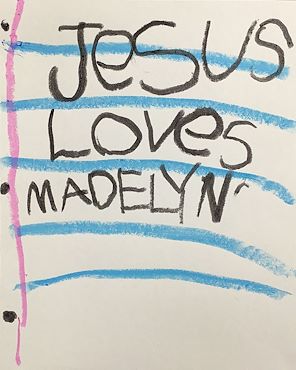 JeSUS
LOVes
MADELYN